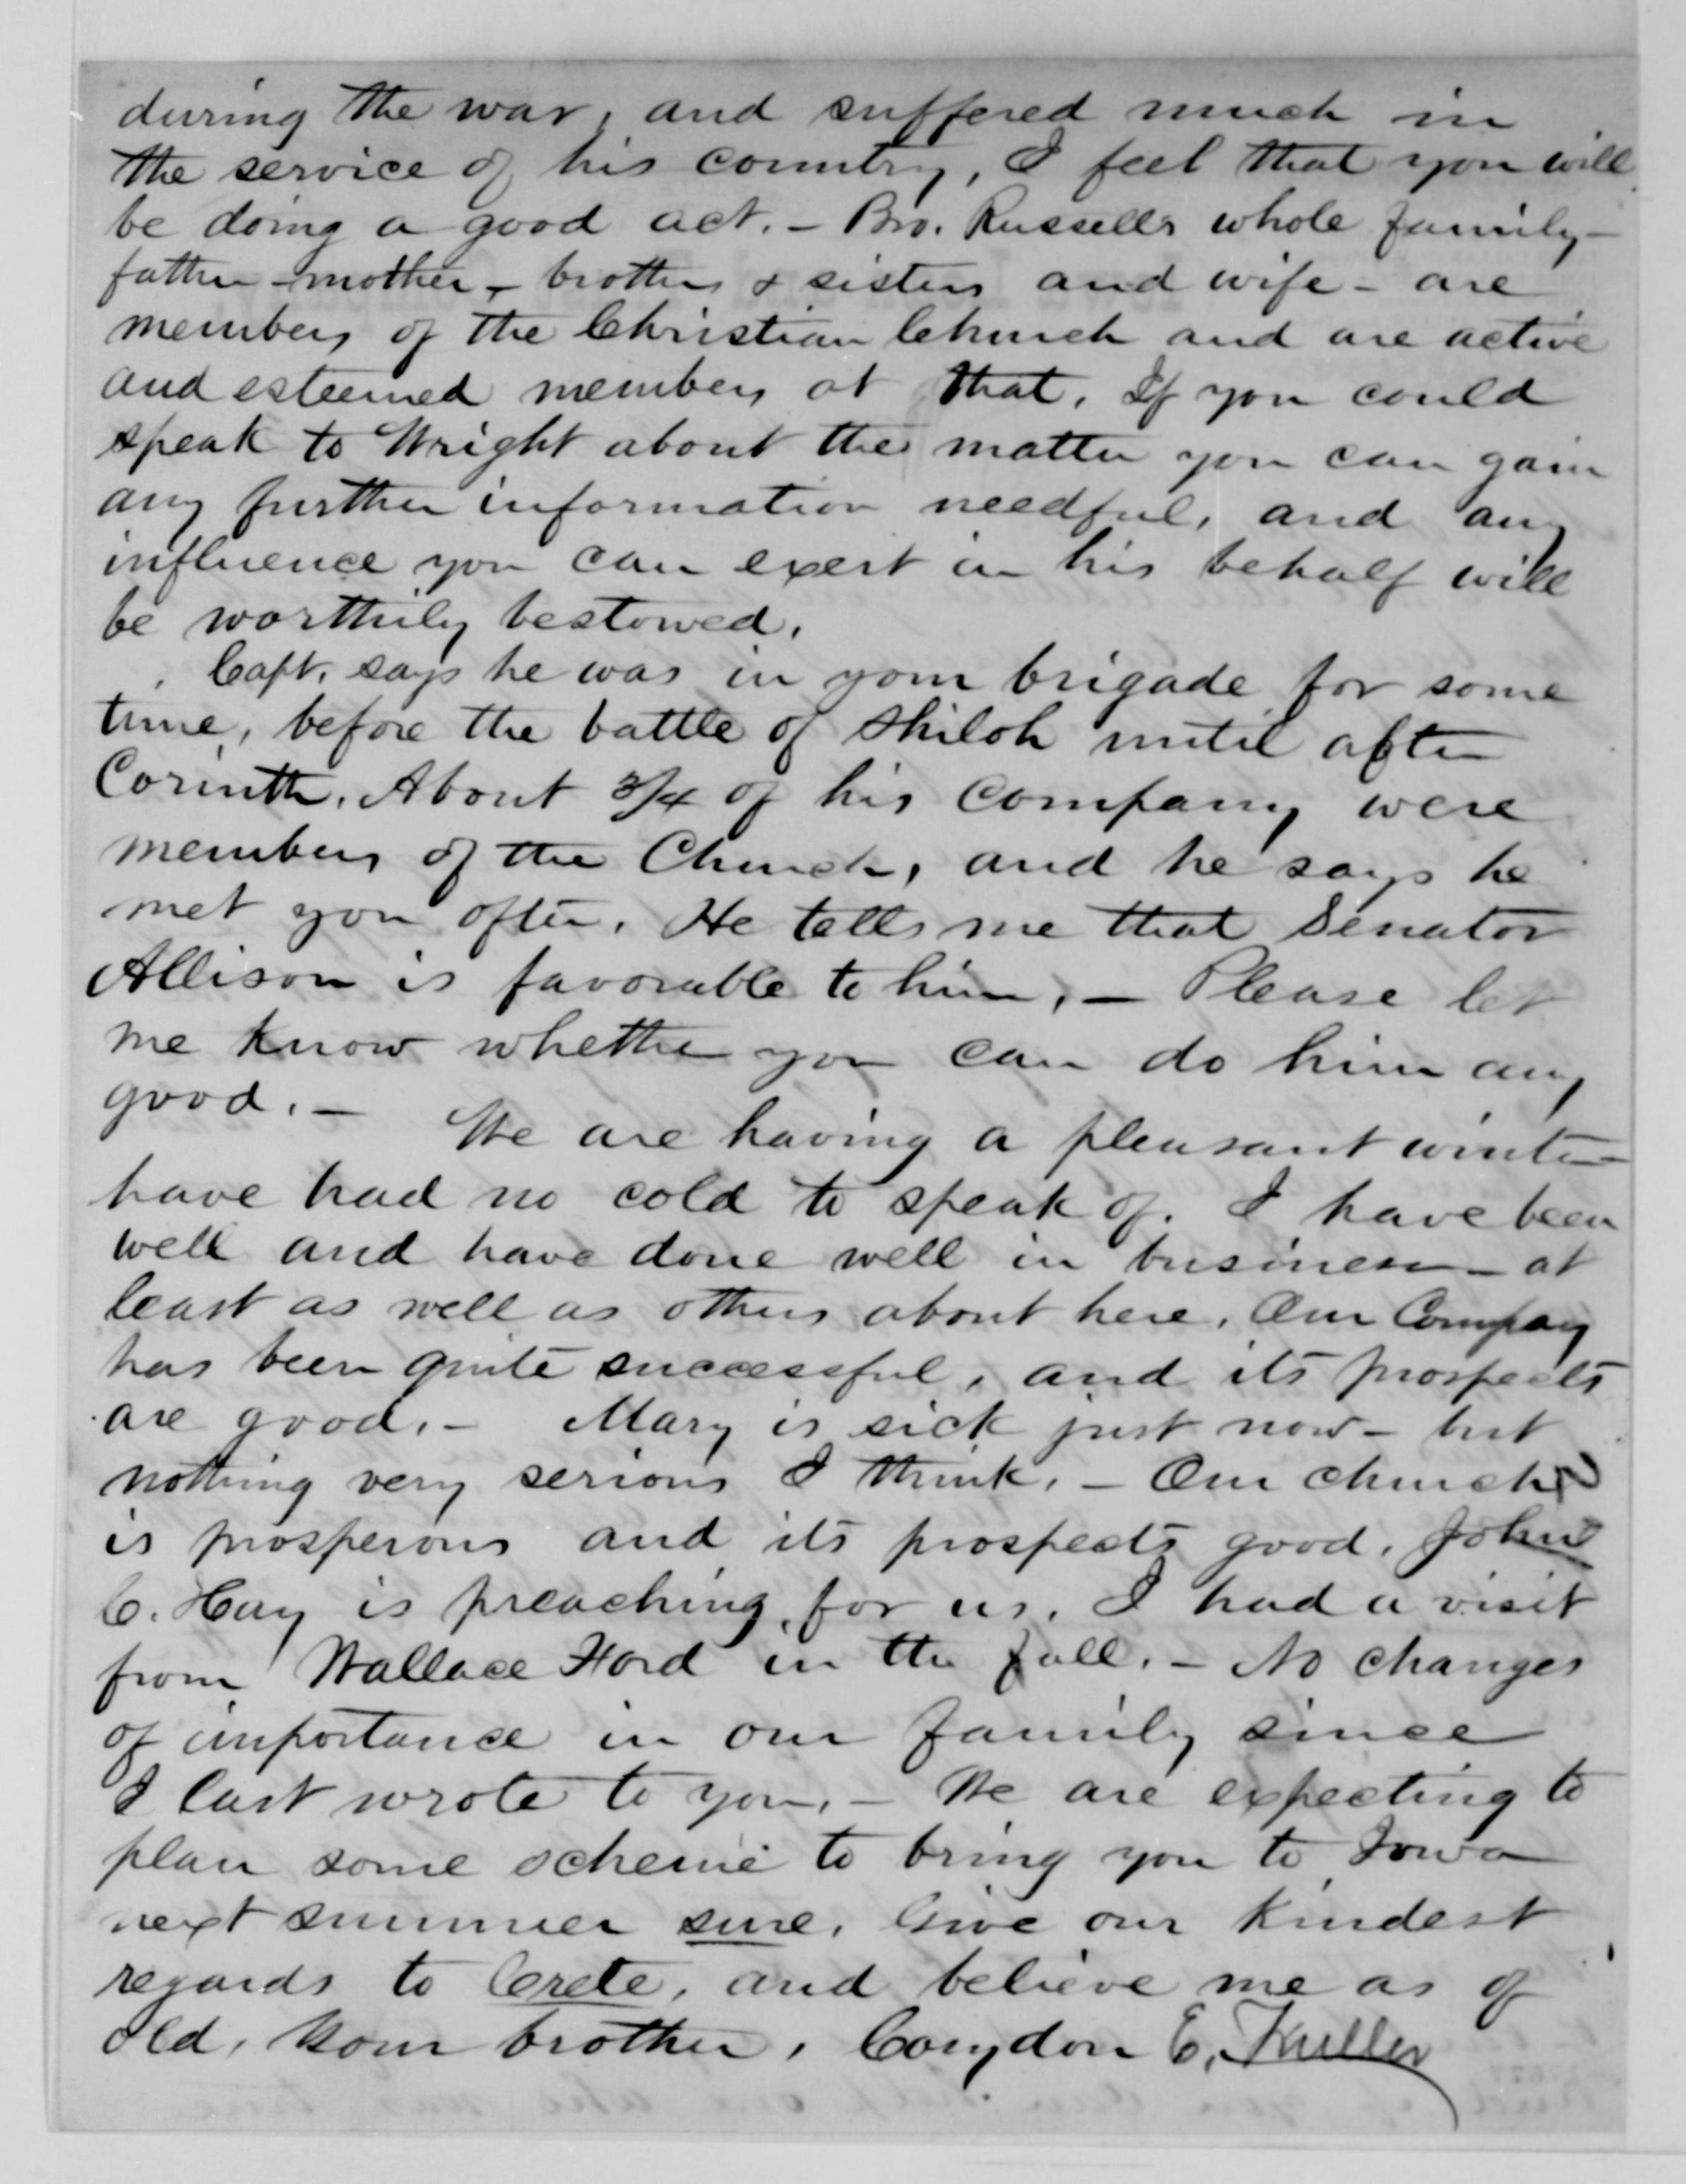 during the war, and suffered much in
the service of his country, I feel that you will
be doing a good act. - Bro. Russells whole family -
father - mother - brothers & sisters and wife - are
members of the Christian Church and are active
and esteemed members at that. If you could
speak to Wright about the matter you can gain
any further information needful, and any
influence you can exert in his behalf will
be worthily bestowed.
Capt. says he was in your brigade for some
time, before the battle of Shiloh until after
Corinth. About 3/4 of his company were
members of the Church, and he says he
met you often. He tells me that Senator
Allison is favorable to him, - Please let
me know whether you can do him any
good. - We are having a pleasant winter -
have had no cold to speak of. I have been
well and have done well in business - at
least as well as others about here. Our Company
has been quite successful, and its prospects
are good. - Mary is sick just now - but
nothing very serious I think. - Our church
is prosperous and its prospects good. John
C. Hay is preaching for us. I had a visit
from Wallace Ford in the fall. - No changes
of importance in our family since
I last wrote to you. - We are expecting to
plan some scheme to bring you to Iowa
next summer sure. Give our kindest
regards to Crete, and believe me as of
old, Your brother, Corydon E. Fuller